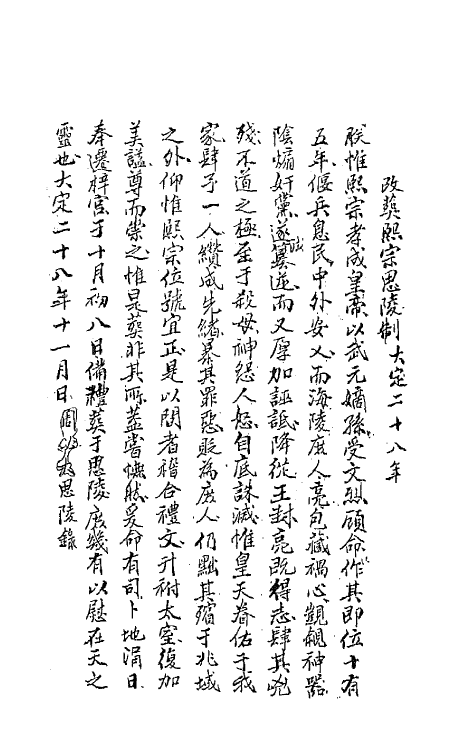 改葬熙宗思陵制 大定二十八年
朕惟熙宗孝成皇帝以武元嫡孫受文烈顧命作其即位十有
五年偃兵息民中外安乂而海陵庶人亮包藏禍心覬覦神器
陰煽奸黨遂篡逆而又厚加誣詆降從王封亮既得志肆其兇
殘不道之極至于殺母神怨人怒自底誅滅惟皇天眷佑于我
家肆予一人纘成先緒暴其罪惡貶為庶人仍黜其殯于兆域
之外仰惟熙宗位號宜正是以閒者稽合禮文升祔太室復加
美謚尊而崇之惟是葬非其所蓋嘗憮然爰命有司卜地涓日
奉遷梓宮于十月初八日備禮葬于思陵庶幾有以慰在天之
靈也大定二十八年十一月日 周思陵錄